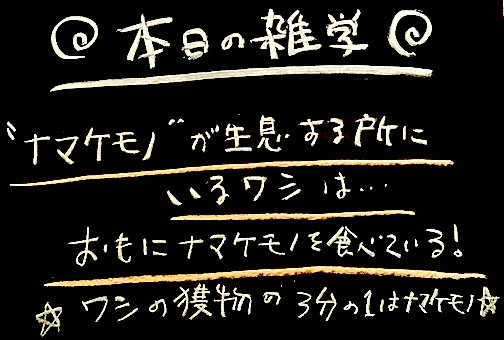 本日の雑学
"ナマケモノ"が生息する所に
いるワシは…
おもにナマケモノを食べている!
☆ワシの獲物の3分の1はナマケモノ☆